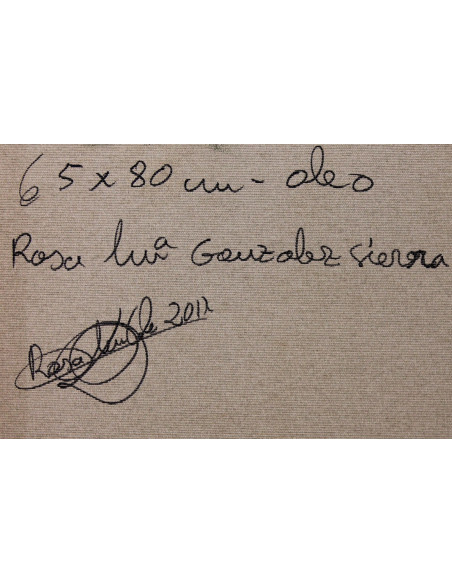 65 x 80 cm - oleo
Rosa Mª Gonzalez Sierra
Rosa